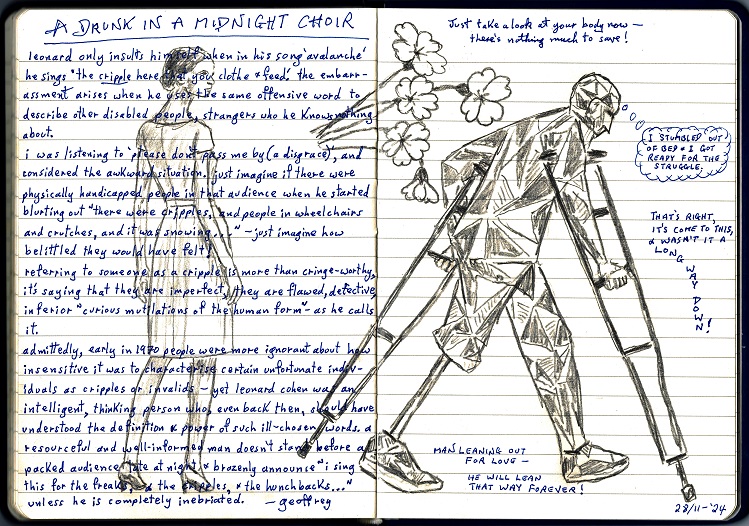 A DRUNK IN A MIDNIGHT CHOIR
leonard only insults himself when in his song 'avalanche'
he sings "the cripple here that you clothe & feed". the embarr-
assment arises when he uses the same offensive word to
describe other disabled people, strangers who he knows nothing
about.
i was listening to 'please don't pass me by (a disgrace)', and
considered the awkward situation. just imagine if there were
physically handicapped people in that audience when he started
blurting out "there were cripples, and people in wheelchairs
and crutches, and it was snowing...." – just imagine how
belittled they would have felt!
referring to someone as a cripple is more than cringe-worthy,
it's saying that they are imperfect, they are flawed, defective,
inferior "curious mutilations of the human form" – as he calls
it.
admittedly, early in 1970 people were more ignorant about how
insensitive it was to characterise certain unfortunate indiv-
iduals as cripples or invalids – yet leonard cohen was an
intelligent, thinking person who, even back then, should have
understood the definition & power of such ill-chosen words. a
resourceful and well-informed man doesn't stand before a
packed audience, late at night, & brazenly announce "i sing
this for the freaks & the cripples, & the hunchbacks..."
unless he is completely inebriated. – geoffrey
Just take a look at your body now –
there's nothing much to save!
I STUMBLED OUT
OF BED & I GOT
READY FOR THE
STRUGGLE.
THAT'S RIGHT,
IT'S COME TO THIS,
& WASN'T IT A
LONG
WAY
DOWN!
MAN LEANING OUT
FOR LOVE –
HE WILL LEAN
THAT WAY FOREVER!
28/11-'24